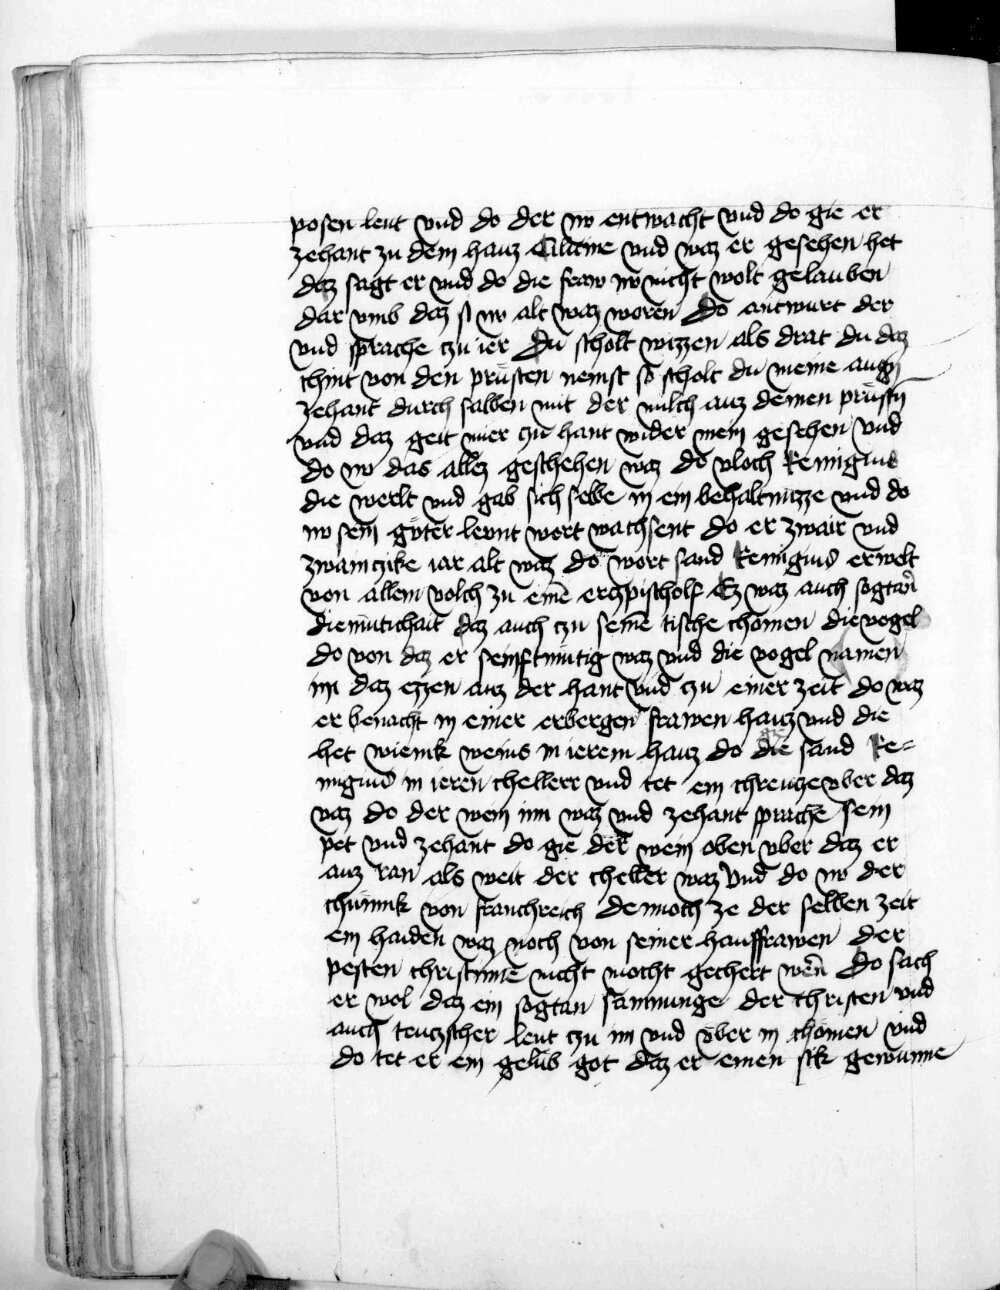 posen leut vnd do der nv entwacht vnd do gie er
zehant zu dem hauz Cilicine vnd waz er gesehen het
daz sagt er vnd do die fraw nv nicht wolt gelauben
dar vmb daz si nv alt waz woren Do antwurt der
vnd sprache czu ier Du scholt wizzen als drat du daz
chint von den prüsten nemst so scholt du meine augn
zehant durch salben mit der milch auz deinen prüstn
vnd daz geit mier zu hant wider mein gesehen vnd
do nv das allez geschehen waz do vloch Remigius
die werlt vnd gab sich selbe in ein behaltnuzze vnd do
nv sein güter levnt wort wachsent do er zwair vnd
zwainczike iar alt waz do wort sand Remigius erwelt
von allem volch zu eine̅ erczpischolf Ez waz auch sogtan̅
diemutichait daz auch czu seine̅ tische chomen die vogel
do von daz er senftmutig waz vnd die vogel namen
im daz ezzen auz der hant vnd czu einer zeit do waz
er benacht in einer erbergen frawen hauz vnd die
het wienik weins in ierem hauz do gie die sand Re=
migius in ieren chellerr vnd tet ein chreucze vber daz
vaz do der wein inn waz vnd zehant sprache sein
pet vnd zehant do gie der wein oben vber daz er
auz ran als weit der cheller waz vnd do nv der
chunnik von franchreich dennoch ze der selben zeit
ein haiden waz noch von seiner hausfrawen der
pesten christinne nicht mocht gechert wer̅n Do sach
er wol daz ein sogtan samnunge der christen vnd
auch teuczscher leut czu im vnd vber in chomen vnd
do tet er ein gelub got daz er einen sik gewunne